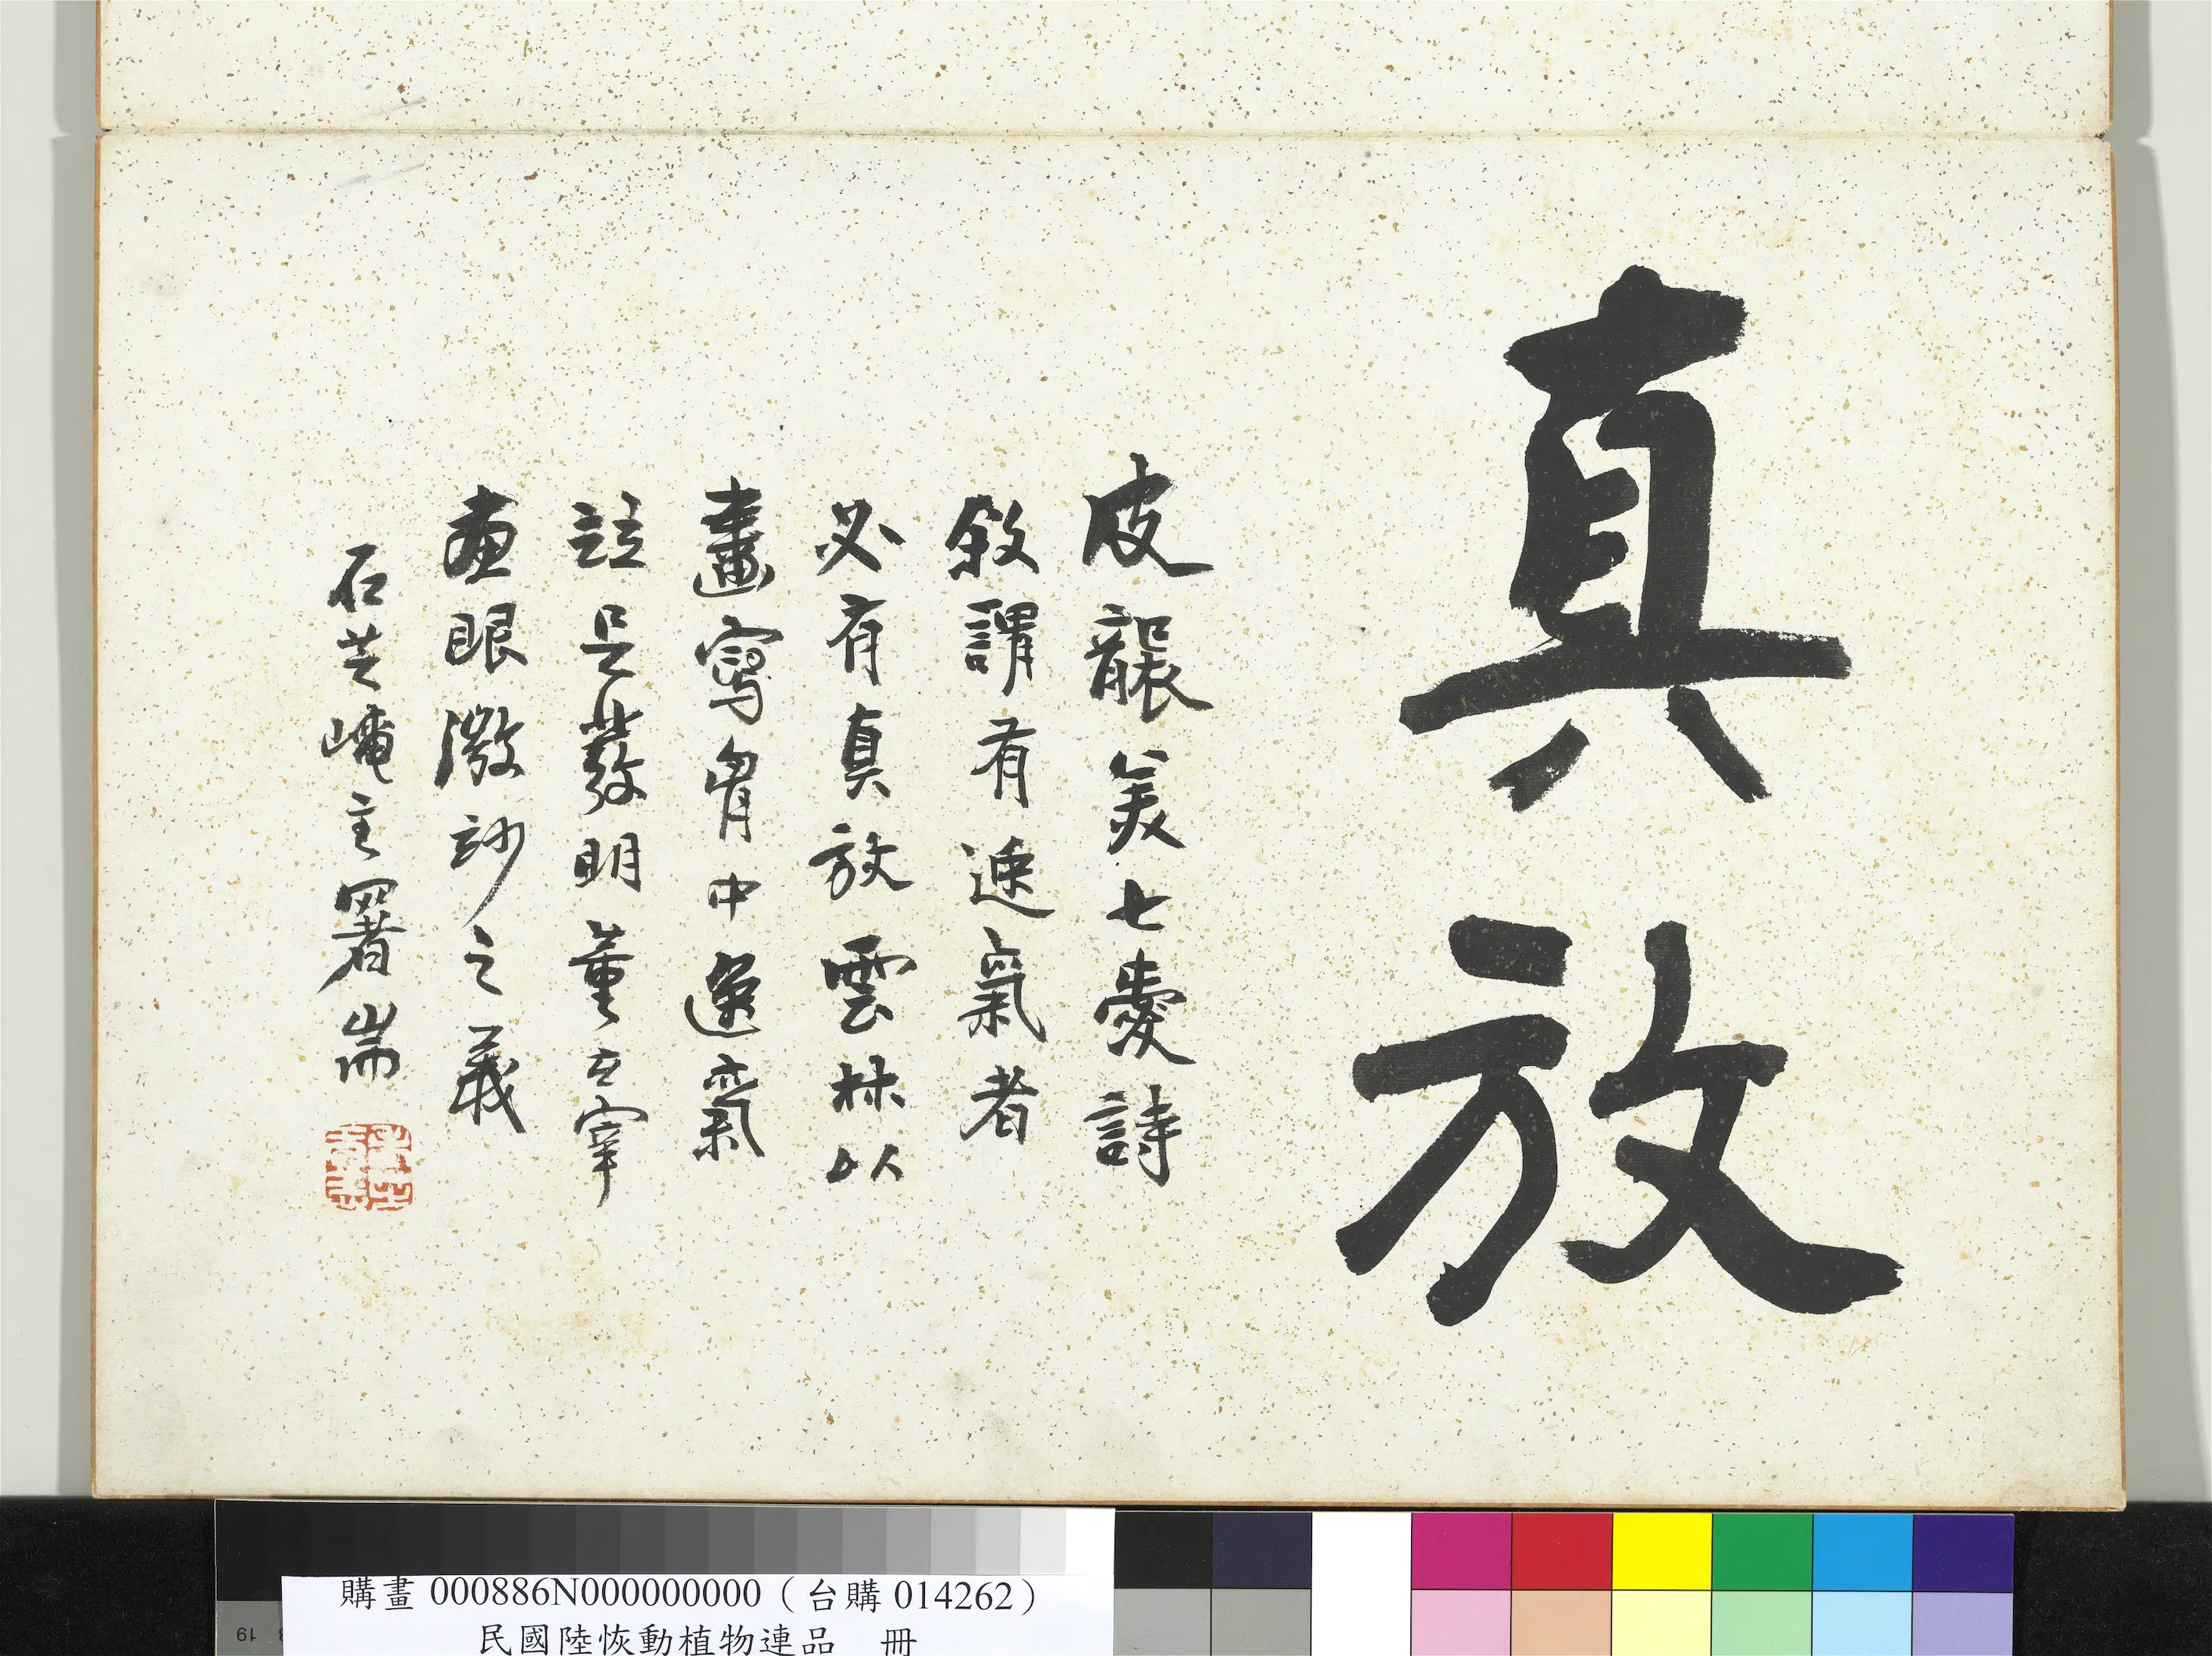 真放
皮襲美七愛詩
敘謂有逸氣者
必有真放雲林以
畫寫胷中逸氣
註足發明董玄宰
畫眼微玅之義
石芝崦主署耑
購畫 000886N000000000（台購 014262）
民國陸恢動植物連品 冊
19